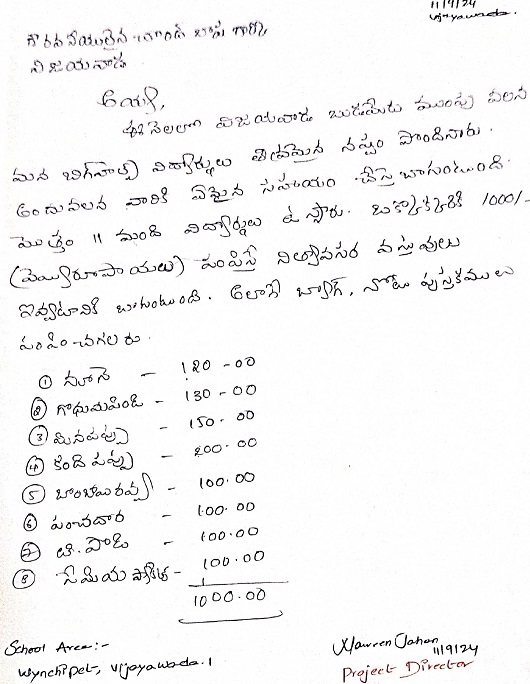 11/9/24
Vijayawada.
గౌరవనీయులైన చాంద్ బాషా గార్కి
విజయవాడ
ఆయ్యా,
ఈ నెలలో విజయవాడ బుడమేరు ముంపు వలన
మన విద్యార్థులు తీవ్రమైన నష్టం పొందినారు.
అందువలన వారికి ఏదైన సహాయం చేస్తె బాగుంటుంది.
మొత్తం 11 మంది విద్యార్థులు ఉన్నారు. ఒక్కొక్కరికి 1000/-
(వెయ్యిరూపాయలు) పంపిస్తే నిత్యావసర వస్తువులు
ఇవ్వటానికి బాగుంటుంది. అలాగే బ్యాగ్, నోటు పుస్తకములు
పంపించగలరు.
① నూనె - 120-00
② గోధుమపిండి - 130-00
③ మినపప్పు - 150.00
④ కంది పప్పు - 200.00
⑤ బొంబాయిరవ్వ - 100.00
⑥ పంచదార - 100.00
⑦ టి.పొడి - 100.00
⑧ సేమియ ప్యాకెట్ - 100.00
1000.00
School Area:-
Wynchipet, Vijayawada.1
Nawreen Jahan
11/9/24
Project Director